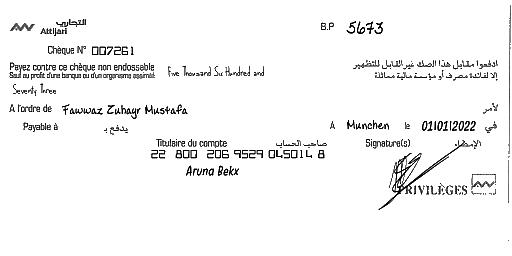 التجاري
Attijari
B.P 5673
Chèque N° 007261
Payez contre ce chèque non endossable
Sauf au profit d'une banque ou d'un organisme assimilé
Five Thousand Six Hundred and
ادفعوا مقابل هذا الصك غير القابل للتظهير
إلا لفائدة مصرف أو مؤسسة مالية مماثلة
Seventy Three
A l'ordre de Fawwaz Zuhayr Mustafa لأمر
Payable à يدفع بـ
A Munchen le 01/01/2022 في
Titulaire du compte صاحب الحساب
Signature(s) الإمضاء
22 800 206 9529 045014 8
Aruna Bekx
PRIVILÈGES